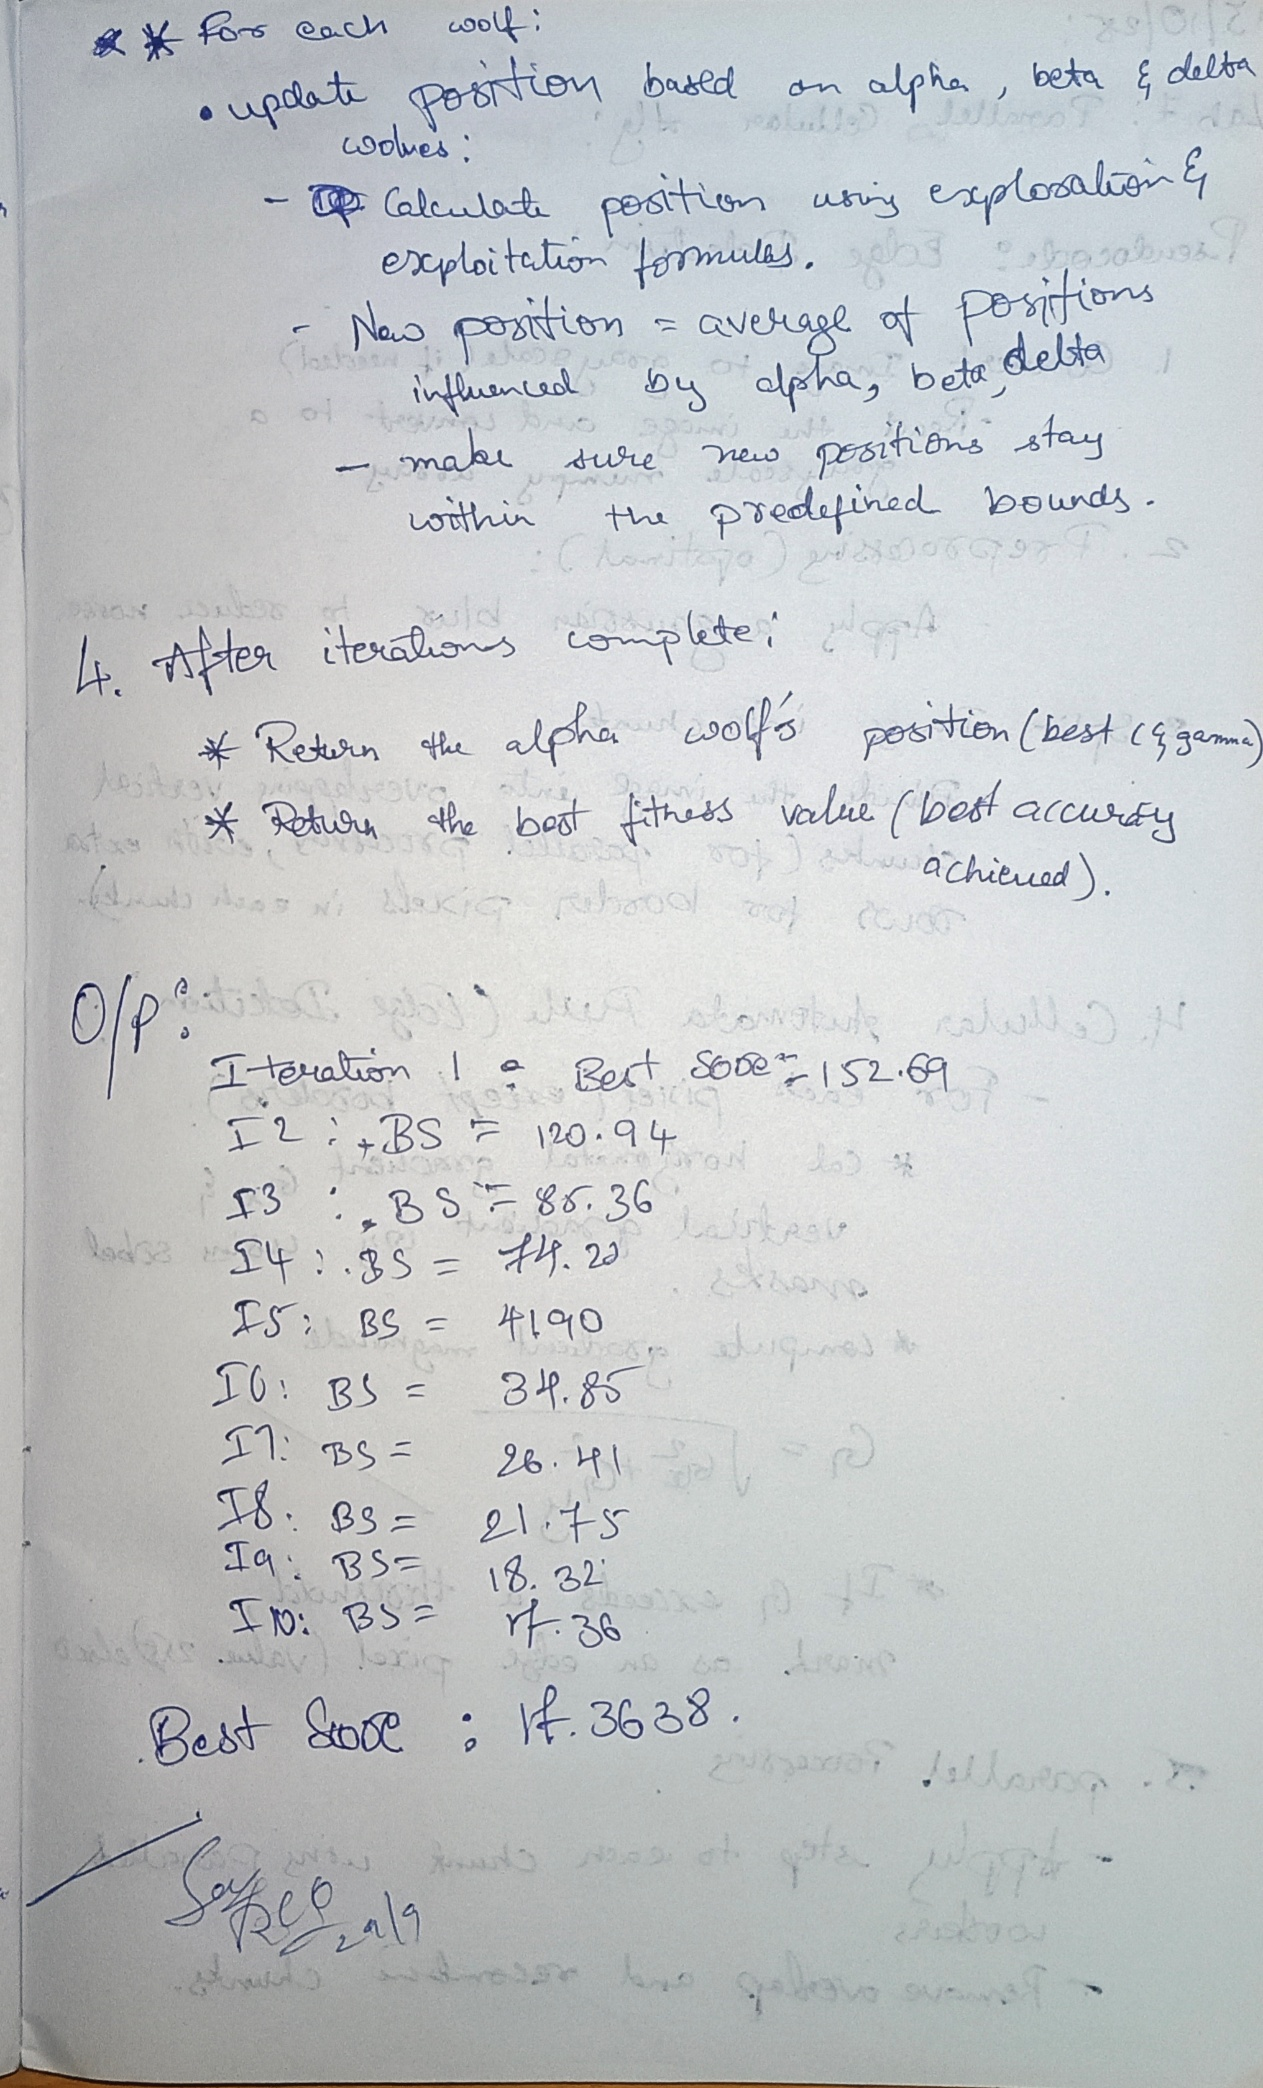 * For each wolf:
• update position based on alpha, beta & delta
wolves:
- Calculate position using exploration &
exploitation formulas.
- New position = average of positions
influenced by alpha, beta, delta
- make sure new positions stay
within the predefined bounds.
4. After iterations complete:
* Return the alpha wolf's position (best C & gamma)
* Return the best fitness value (best accuracy
achieved).
O/P:
Iteration 1 : Best Score = 152.69
I2 : BS = 120.94
I3 : BS = 85.36
I4 : BS = 74.22
I5 : BS = 41.90
I6 : BS = 34.85
I7 : BS = 26.41
I8 : BS = 21.75
I9 : BS = 18.32
I10 : BS = 17.36
Best Score : 17.3638.